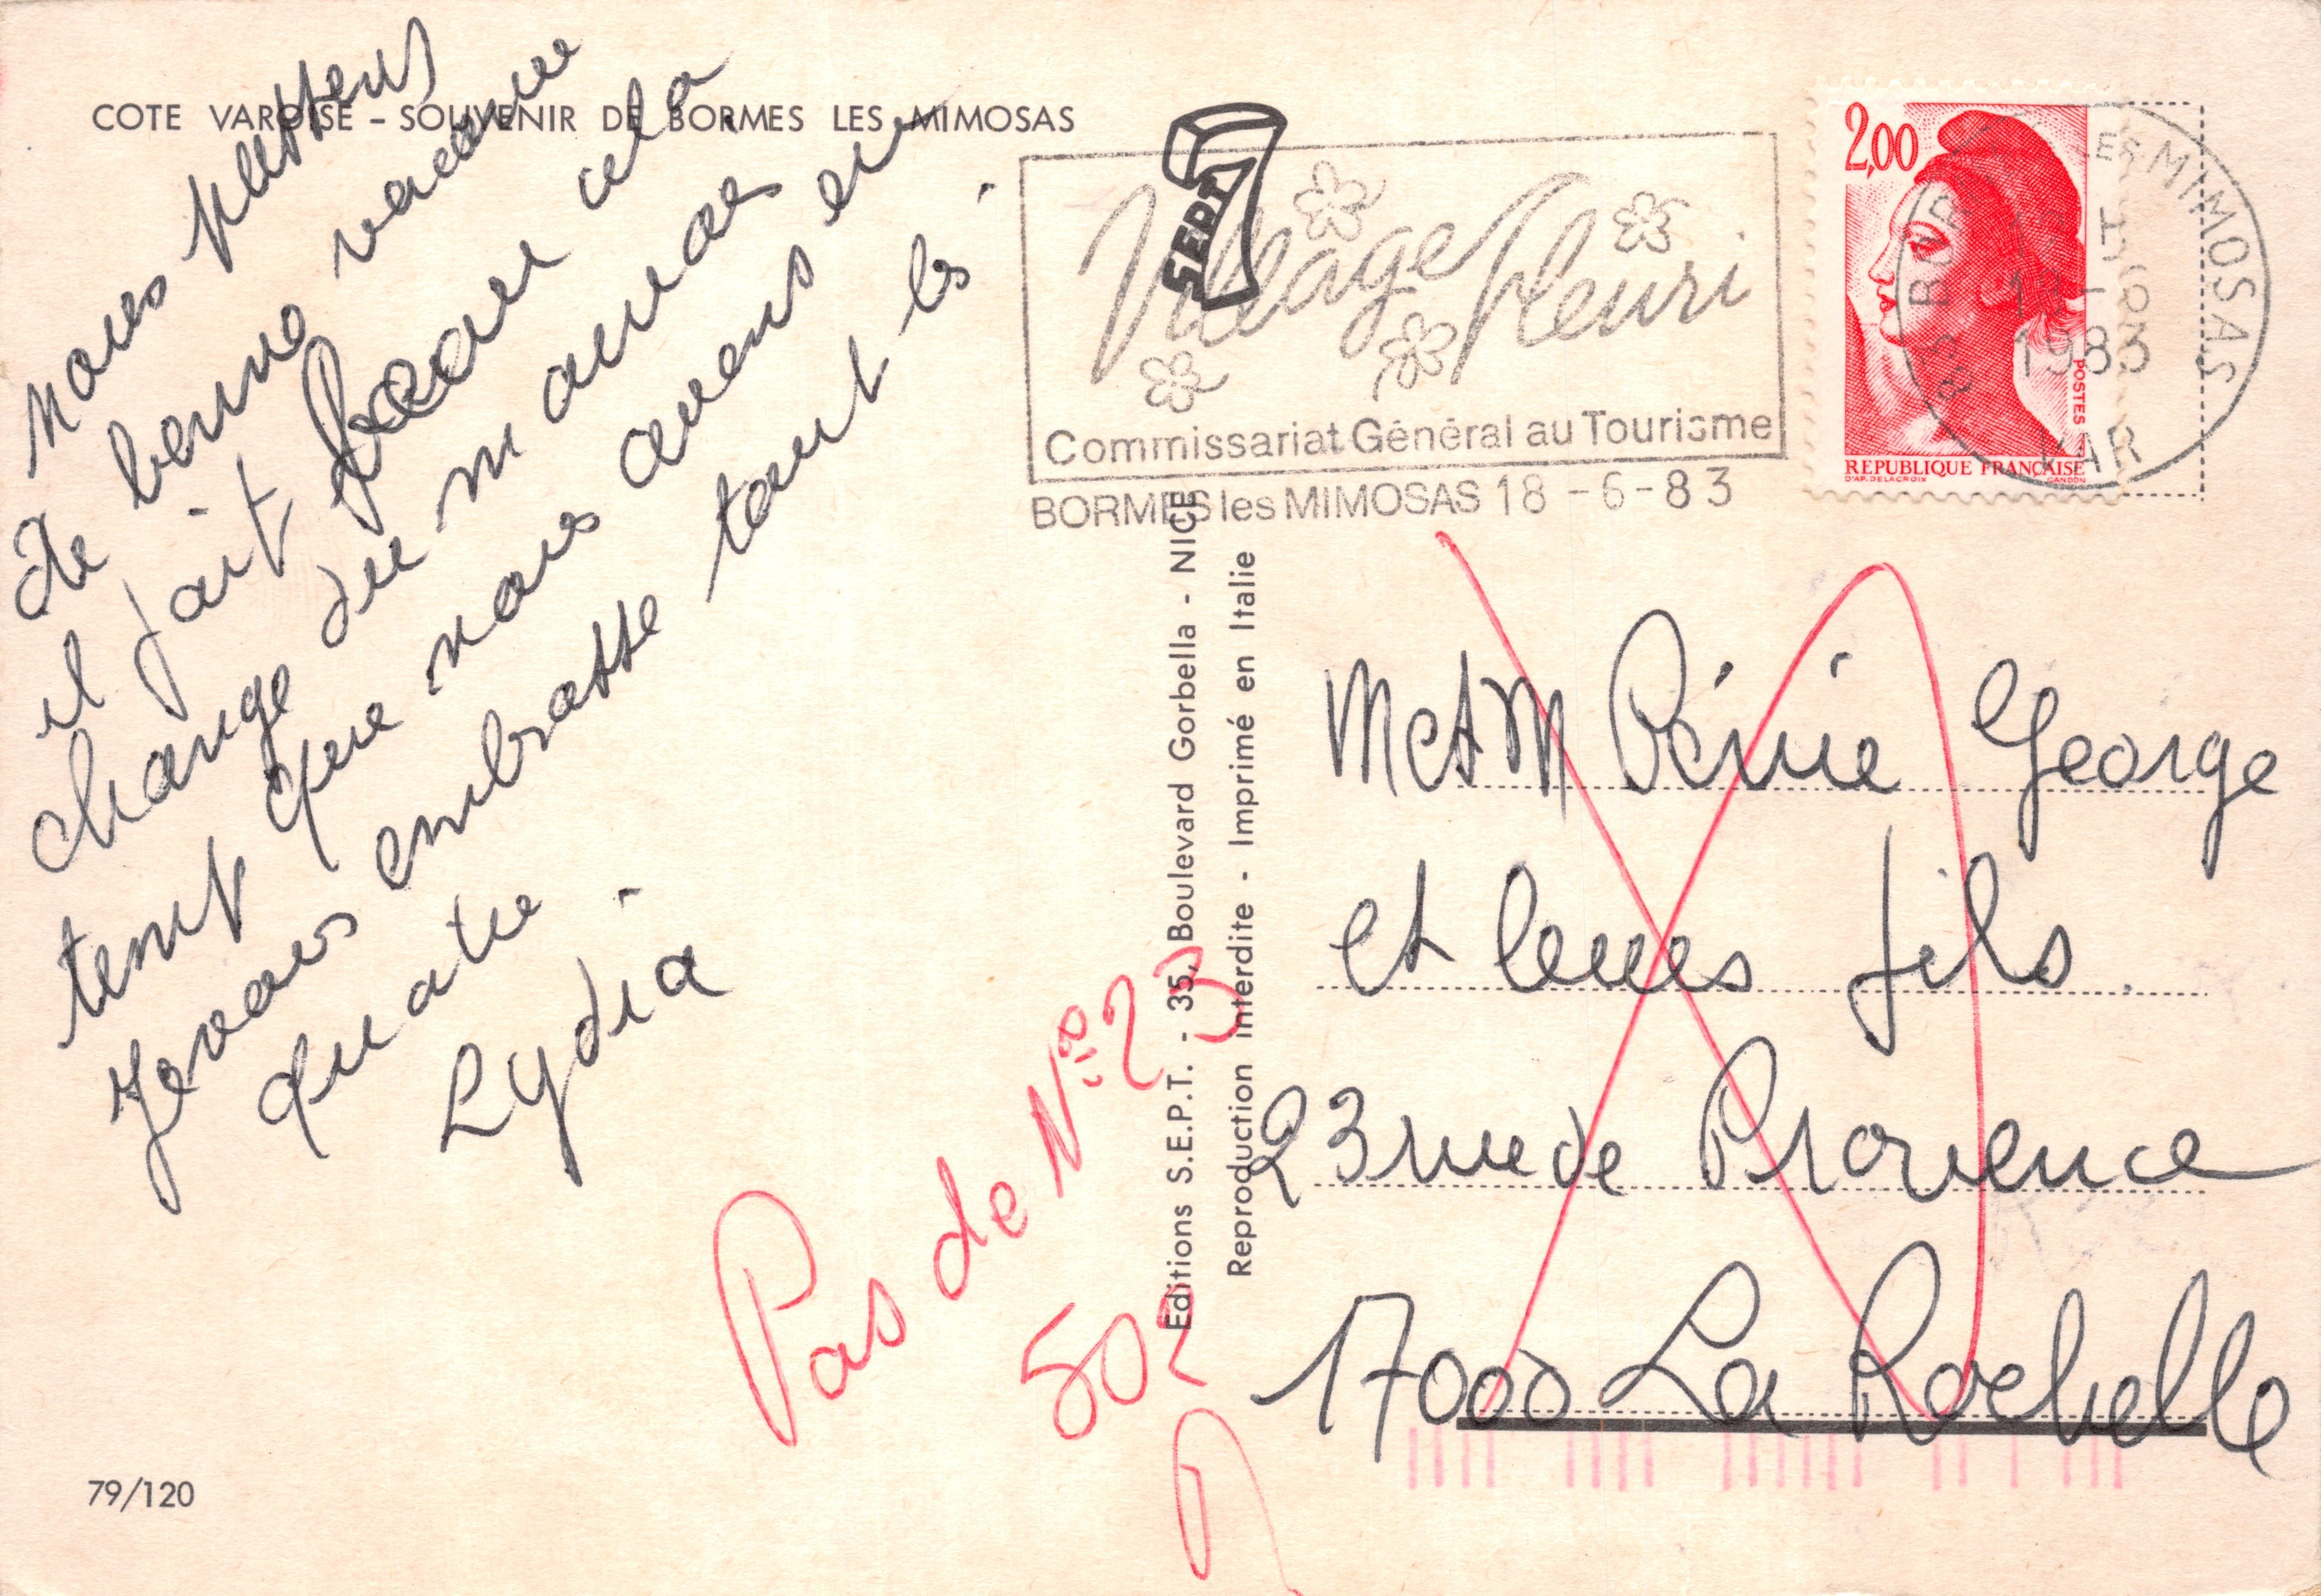 COTE VAROISE - SOUVENIR DE BORMES LES MIMOSAS
nous passons
de bonne vacance
il fait beau cela
change du mauvais
tent que nous avons eu
Je vous embrasse tout les
quatre
Lydia
Pas de N° 23
50
79/120
SEPT
Village Fleuri
Commissariat Général au Tourisme
BORMES les MIMOSAS 18 -6-83
2,00
POSTES
REPUBLIQUE FRANÇAISE
D'AP. DELACROIX GANDON
83 BORMES LES MIMOSAS
1983
VAR
Editions S.E.P.T. - 35, Boulevard Gorbella - NICE
Reproduction interdite - Imprimé en Italie
M et M George
et leues fils
23 rue de Provence
17000 La Rochelle